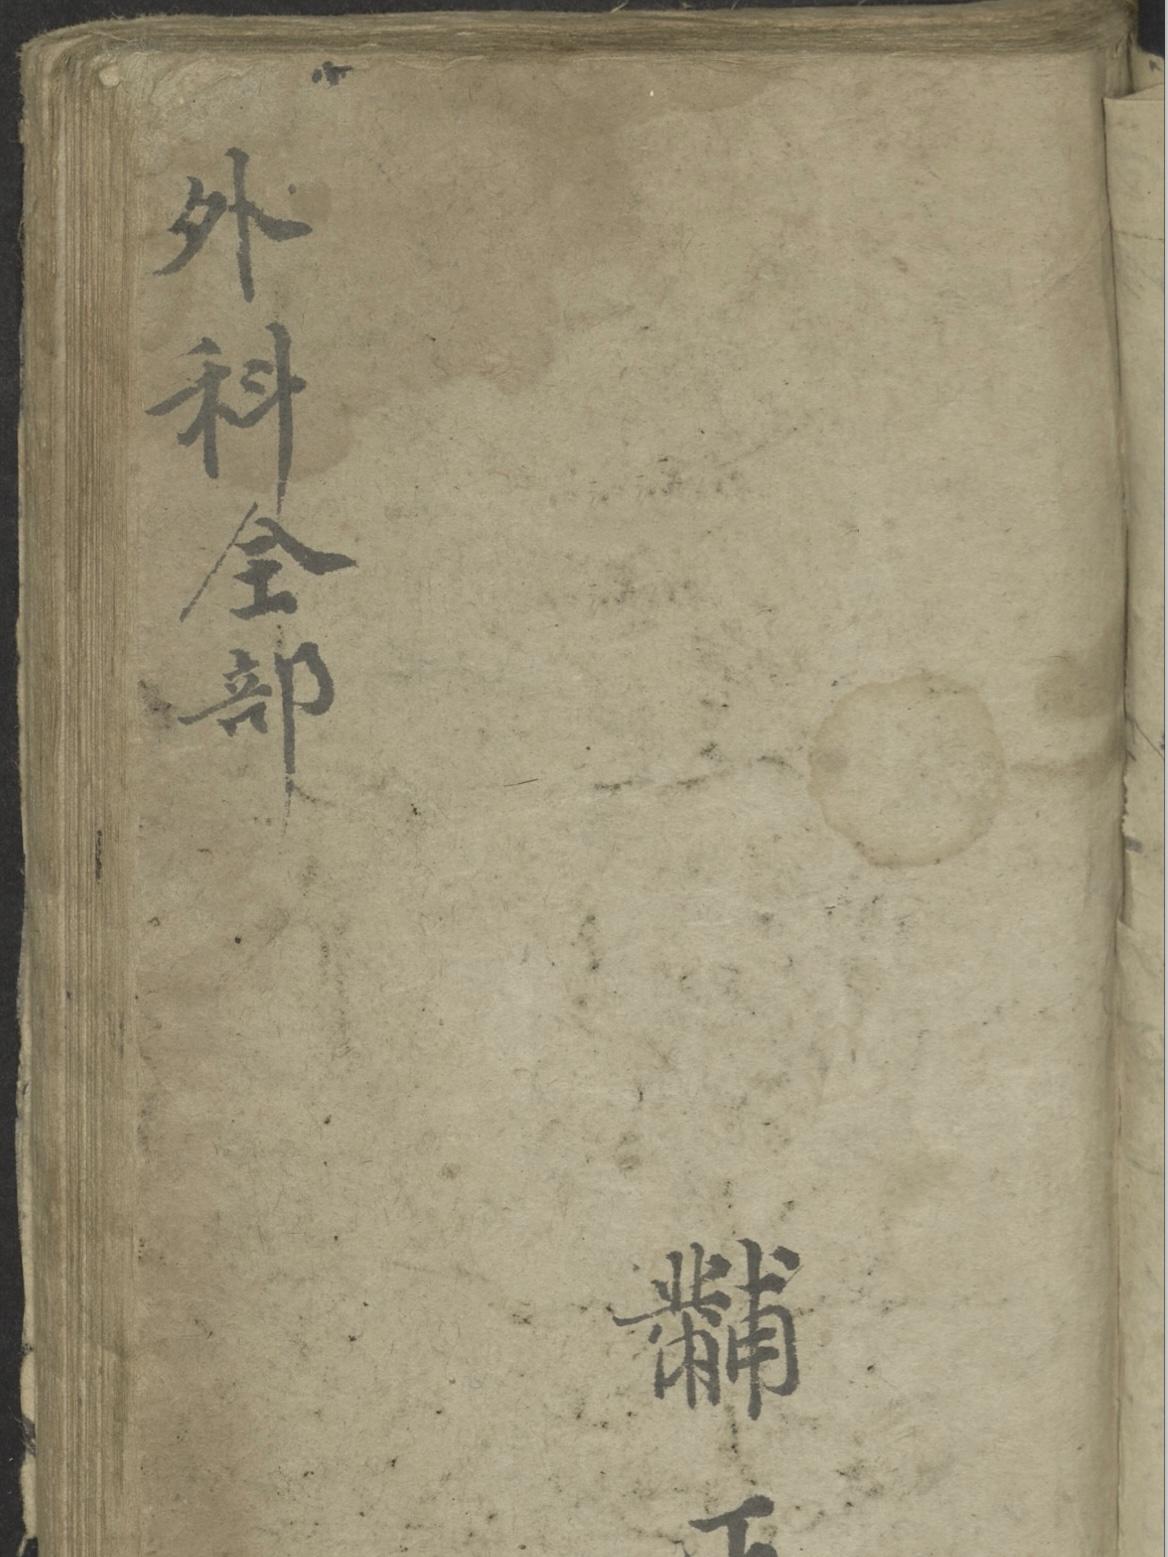 黼
外科全部